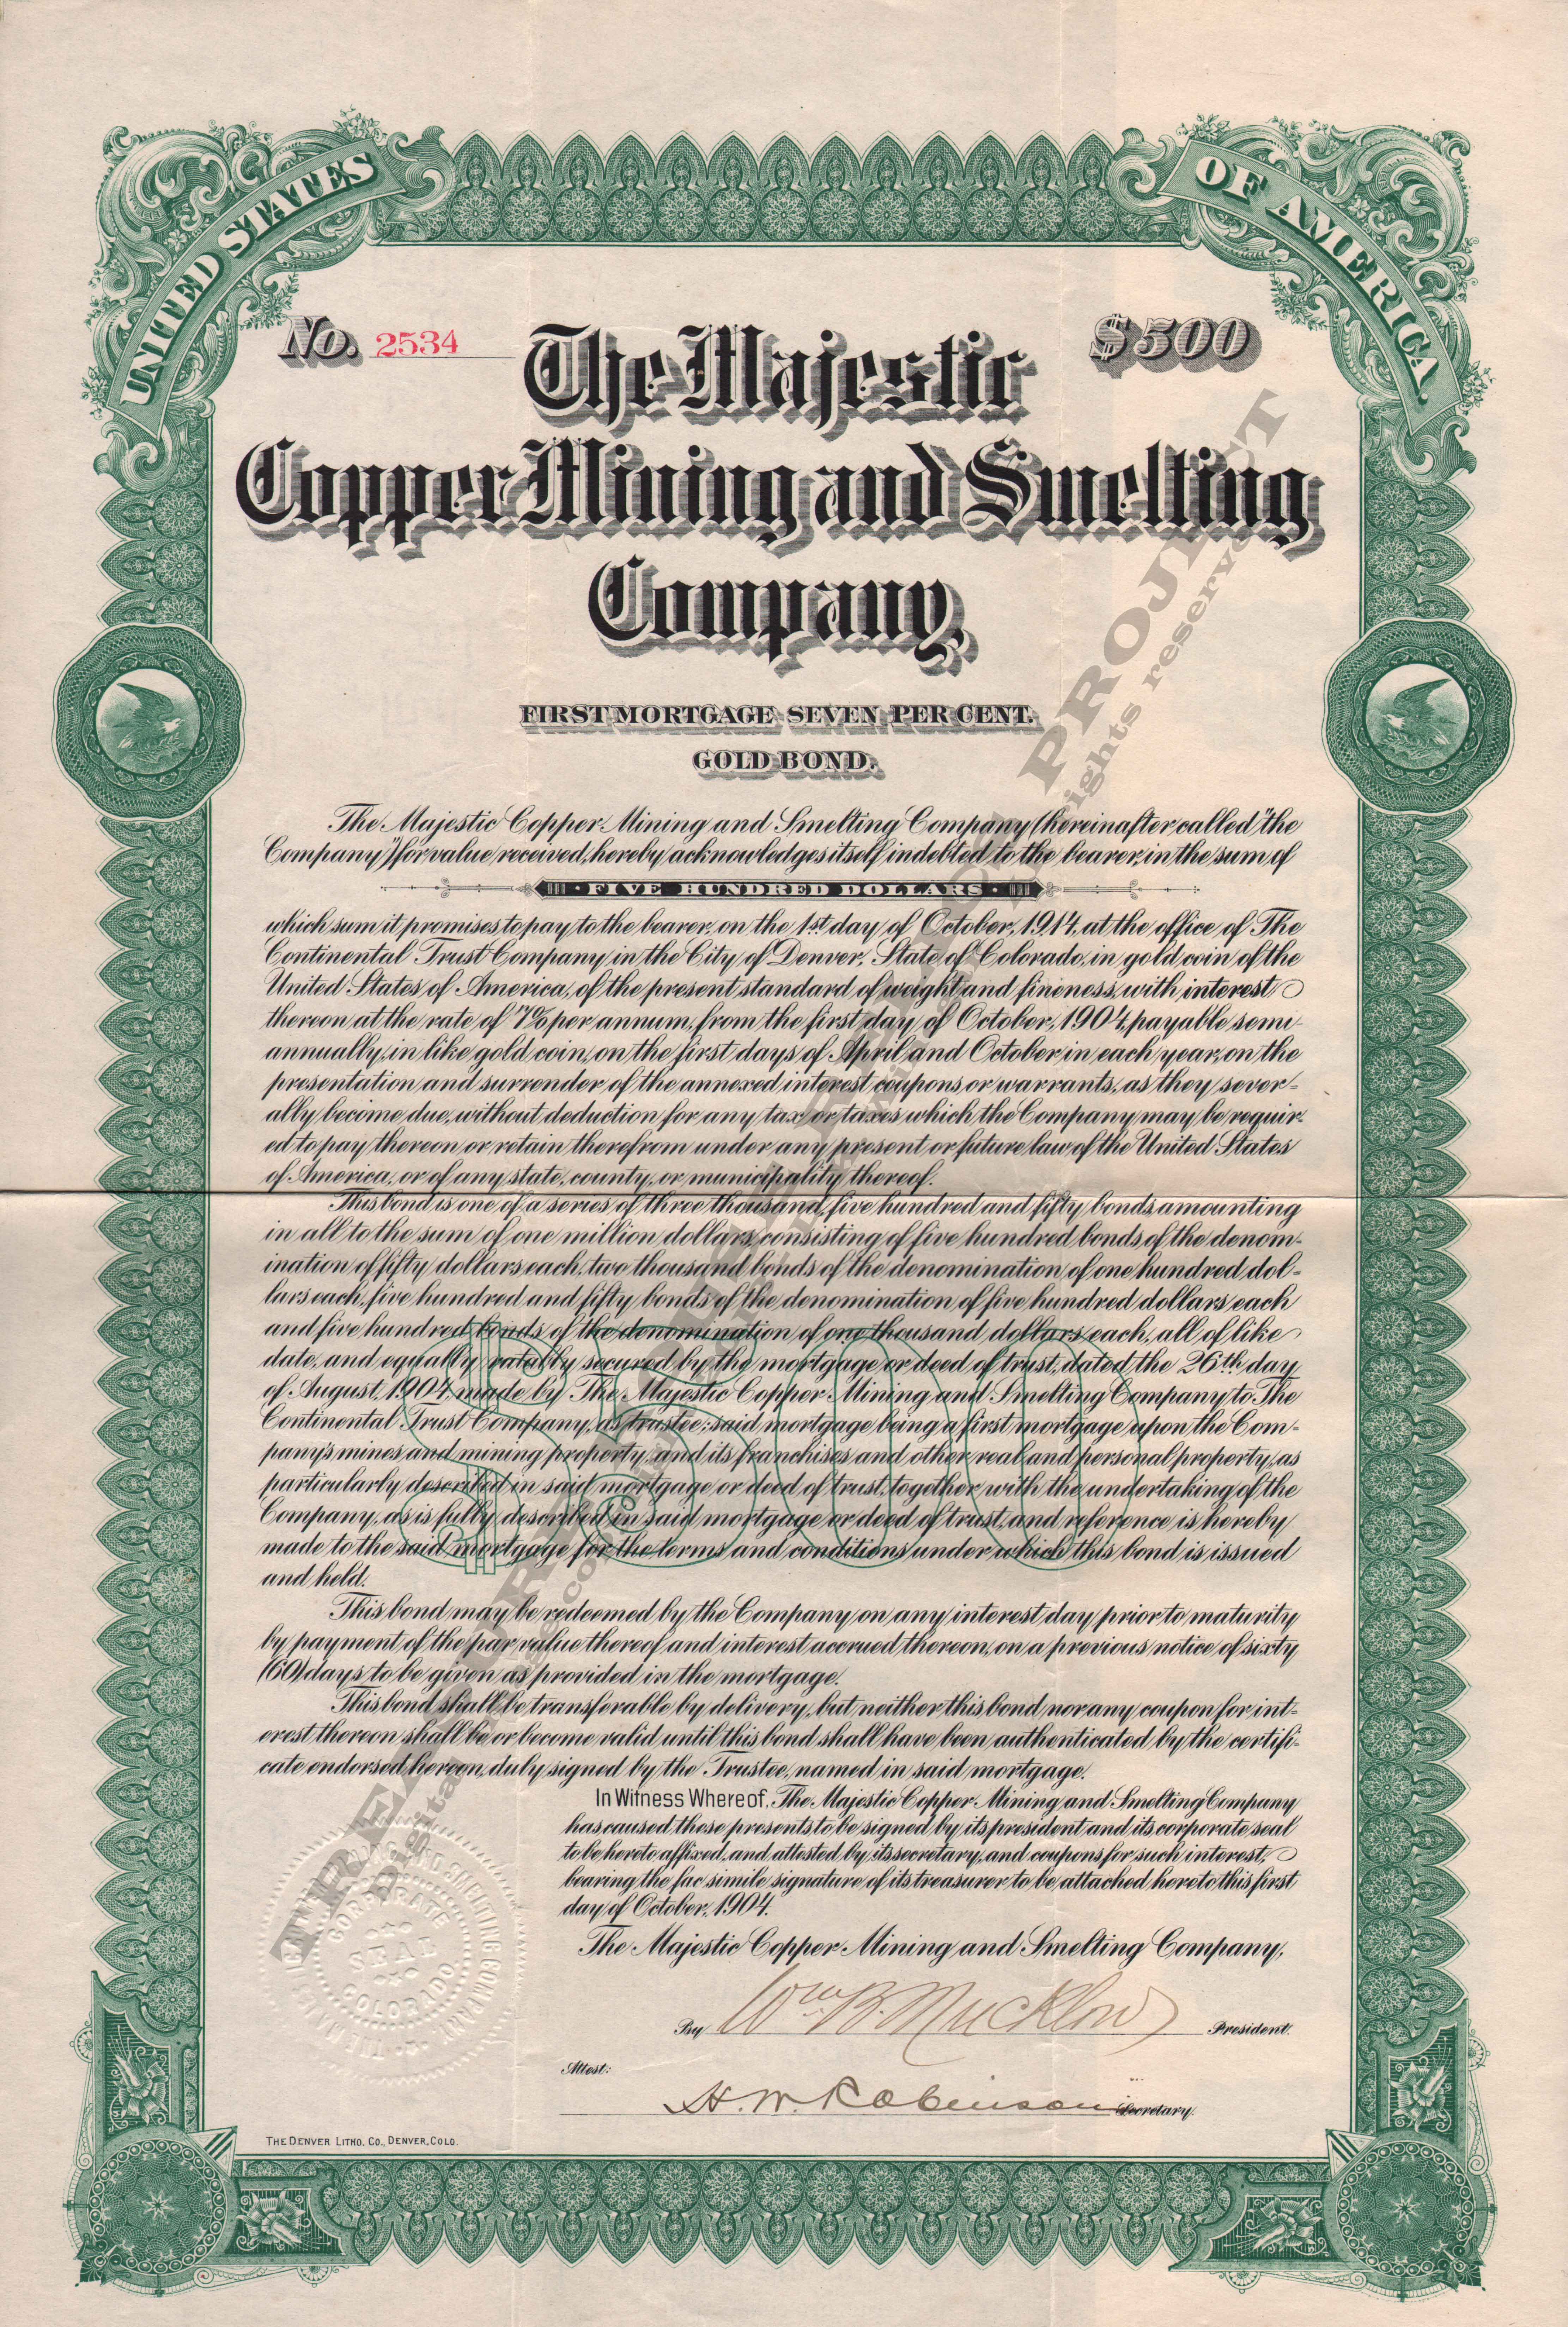 UNITED STATES
OF AMERICA
No. 2534
$500
The Majestic
Copper Mining and Smelting
Company,
FIRST MORTGAGE SEVEN PER CENT.
GOLD BOND.
The Majestic Copper Mining and Smelting Company (hereinafter called "the
Company") for value received, hereby acknowledges itself indebted to the bearer, in the sum of
FIVE HUNDRED DOLLARS
which sum it promises to pay to the bearer, on the 1st day of October, 1914, at the office of The
Continental Trust Company in the City of Denver, State of Colorado, in gold coin of the
United States of America, of the present standard of weight and fineness, with interest
thereon at the rate of 7% per annum, from the first day of October, 1904, payable semi-
annually, in like gold coin, on the first days of April and October in each year, on the
presentation and surrender of the annexed interest coupons or warrants, as they sever-
ally become due, without deduction for any tax or taxes which the Company may be requir-
ed to pay thereon or retain therefrom under any present or future law of the United States
of America, or of any state, county, or municipality thereof.
This bond is one of a series of three thousand, five hundred and fifty bonds amounting
in all to the sum of one million dollars, consisting of five hundred bonds of the denom-
ination of fifty dollars each, two thousand bonds of the denomination of one hundred dol-
lars each, five hundred and fifty bonds of the denomination of five hundred dollars each
and five hundred bonds of the denomination of one thousand dollars each, all of like
date, and equally ratably secured by the mortgage or deed of trust, dated the 26th day
of August, 1904 made by The Majestic Copper Mining and Smelting Company to The
Continental Trust Company, as trustee; said mortgage being a first mortgage upon the Com-
pany's mines and mining property, and its franchises and other real and personal property, as
particularly described in said mortgage or deed of trust, together with the undertaking of the
Company, as is fully described in said mortgage or deed of trust, and reference is hereby
made to the said mortgage for the terms and conditions under which this bond is issued
and held.
$500
This bond may be redeemed by the Company on any interest day prior to maturity
by payment of the par value thereof and interest accrued thereon, on a previous notice of sixty
(60) days to be given as provided in the mortgage.
This bond shall be transferable by delivery, but neither this bond nor any coupon for int-
erest thereon shall be or become valid until this bond shall have been authenticated by the certifi-
cate endorsed hereon, duly signed by the Trustee, named in said mortgage.
In Witness Whereof, The Majestic Copper Mining and Smelting Company
has caused these presents to be signed by its president and its corporate seal
to be hereto affixed, and attested by its secretary, and coupons for such interest,
bearing the fac simile signature of its treasurer to be attached hereto this first
day of October, 1904.
The Majestic Copper Mining and Smelting Company,
By Wm B. Mucklow President.
Attest:
H. W. Robinson Secretary.
THE MAJESTIC COPPER MINING AND SMELTING COMPANY
CORPORATE
SEAL
COLORADO
THE DENVER LITHO. CO., DENVER, COLO.
PROJECT
rights reserved
Digital